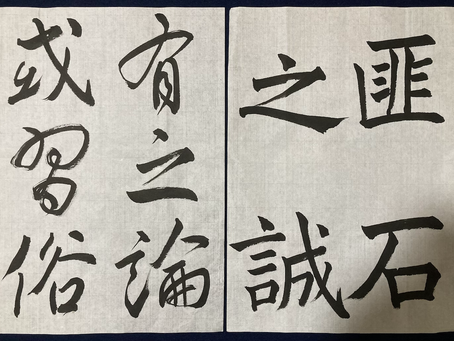 匪石
之誠
有之論
或習俗